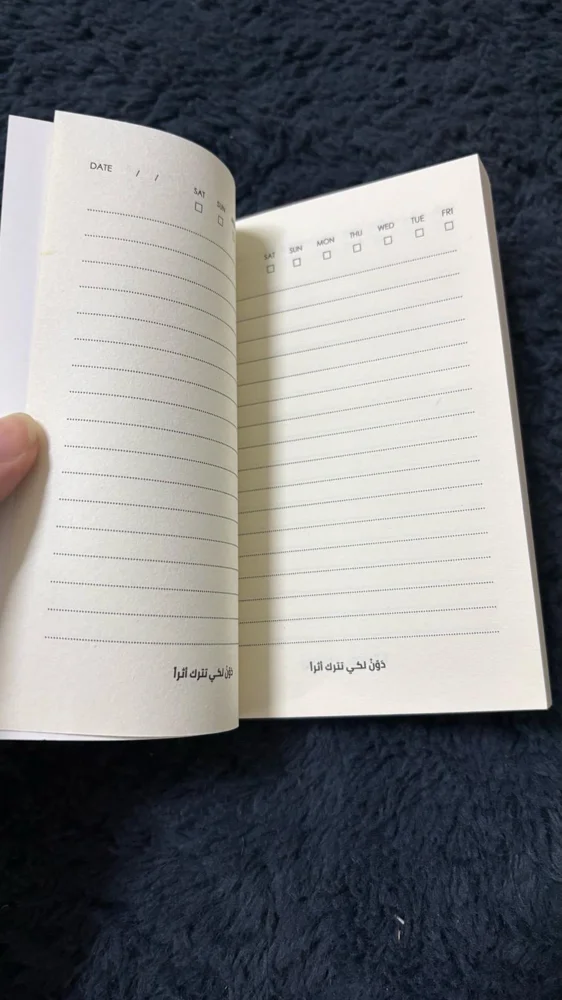 DATE / /
SAT SUN
دَوّنْ لكي تترك أثراً
SAT SUN MON THU WED TUE FRI
دَوّنْ لكي تترك أثراً